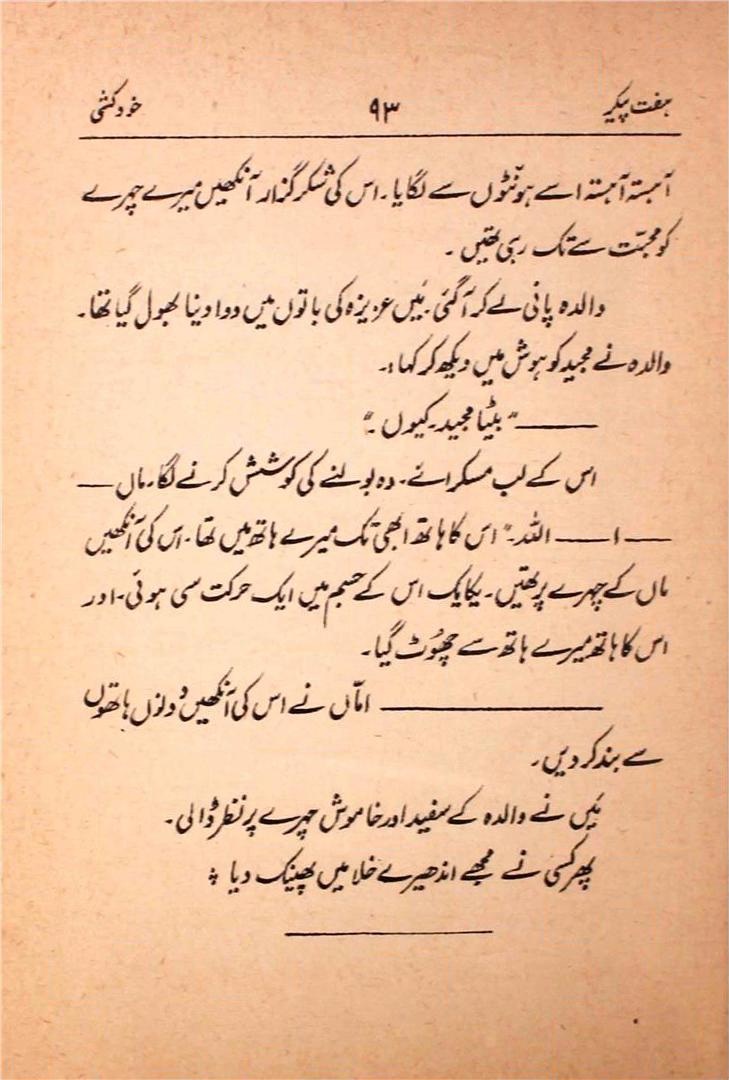 ہفت پیکر ۹۳ خودکشی
آہستہ آہستہ اسے ہونٹوں سے لگایا۔ اس کی شکر گزار آنکھیں میرے چہرے
کو محبّت سے تک رہی تھیں۔
والدہ پانی لے کر آ گئی۔ مَیں عزیزہ کی باتوں میں دوا دینا بھول گیا تھا۔
والدہ نے مجید کو ہوش میں دیکھ کر کہا:۔
——— "بیٹا مجید۔ کیوں۔"
اس کے لب مسکرائے۔ وہ بولنے کی کوشش کرنے لگا۔ ماں ——
—— ا —— اللہ۔" اس کا ہاتھ ابھی تک میرے ہاتھ میں تھا۔ اس کی آنکھیں
ماں کے چہرے پر تھیں۔ یکایک اس کے جسم میں ایک حرکت سی ہوئی۔ اور
اس کا ہاتھ میرے ہاتھ سے چھُوٹ گیا۔
———————— امّاں نے اس کی آنکھیں دونوں ہاتھوں
سے بند کر دیں۔
مَیں نے والدہ کے سفید اور خاموش چہرے پر نظر ڈالی۔
پھر کسی نے مجھے اندھیرے خلا میں پھینک دیا ؞